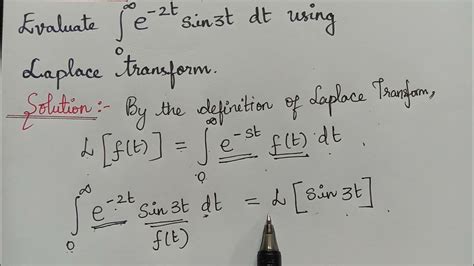 Evaluate ∫₀^∞ e^{-2t} sin3t dt using
Laplace transform.
Solution:- By the definition of Laplace Transform,
L[f(t)] = ∫₀^∞ e^{-st} f(t) dt
∫₀^∞ e^{-2t} sin3t dt = L[sin3t]
f(t)